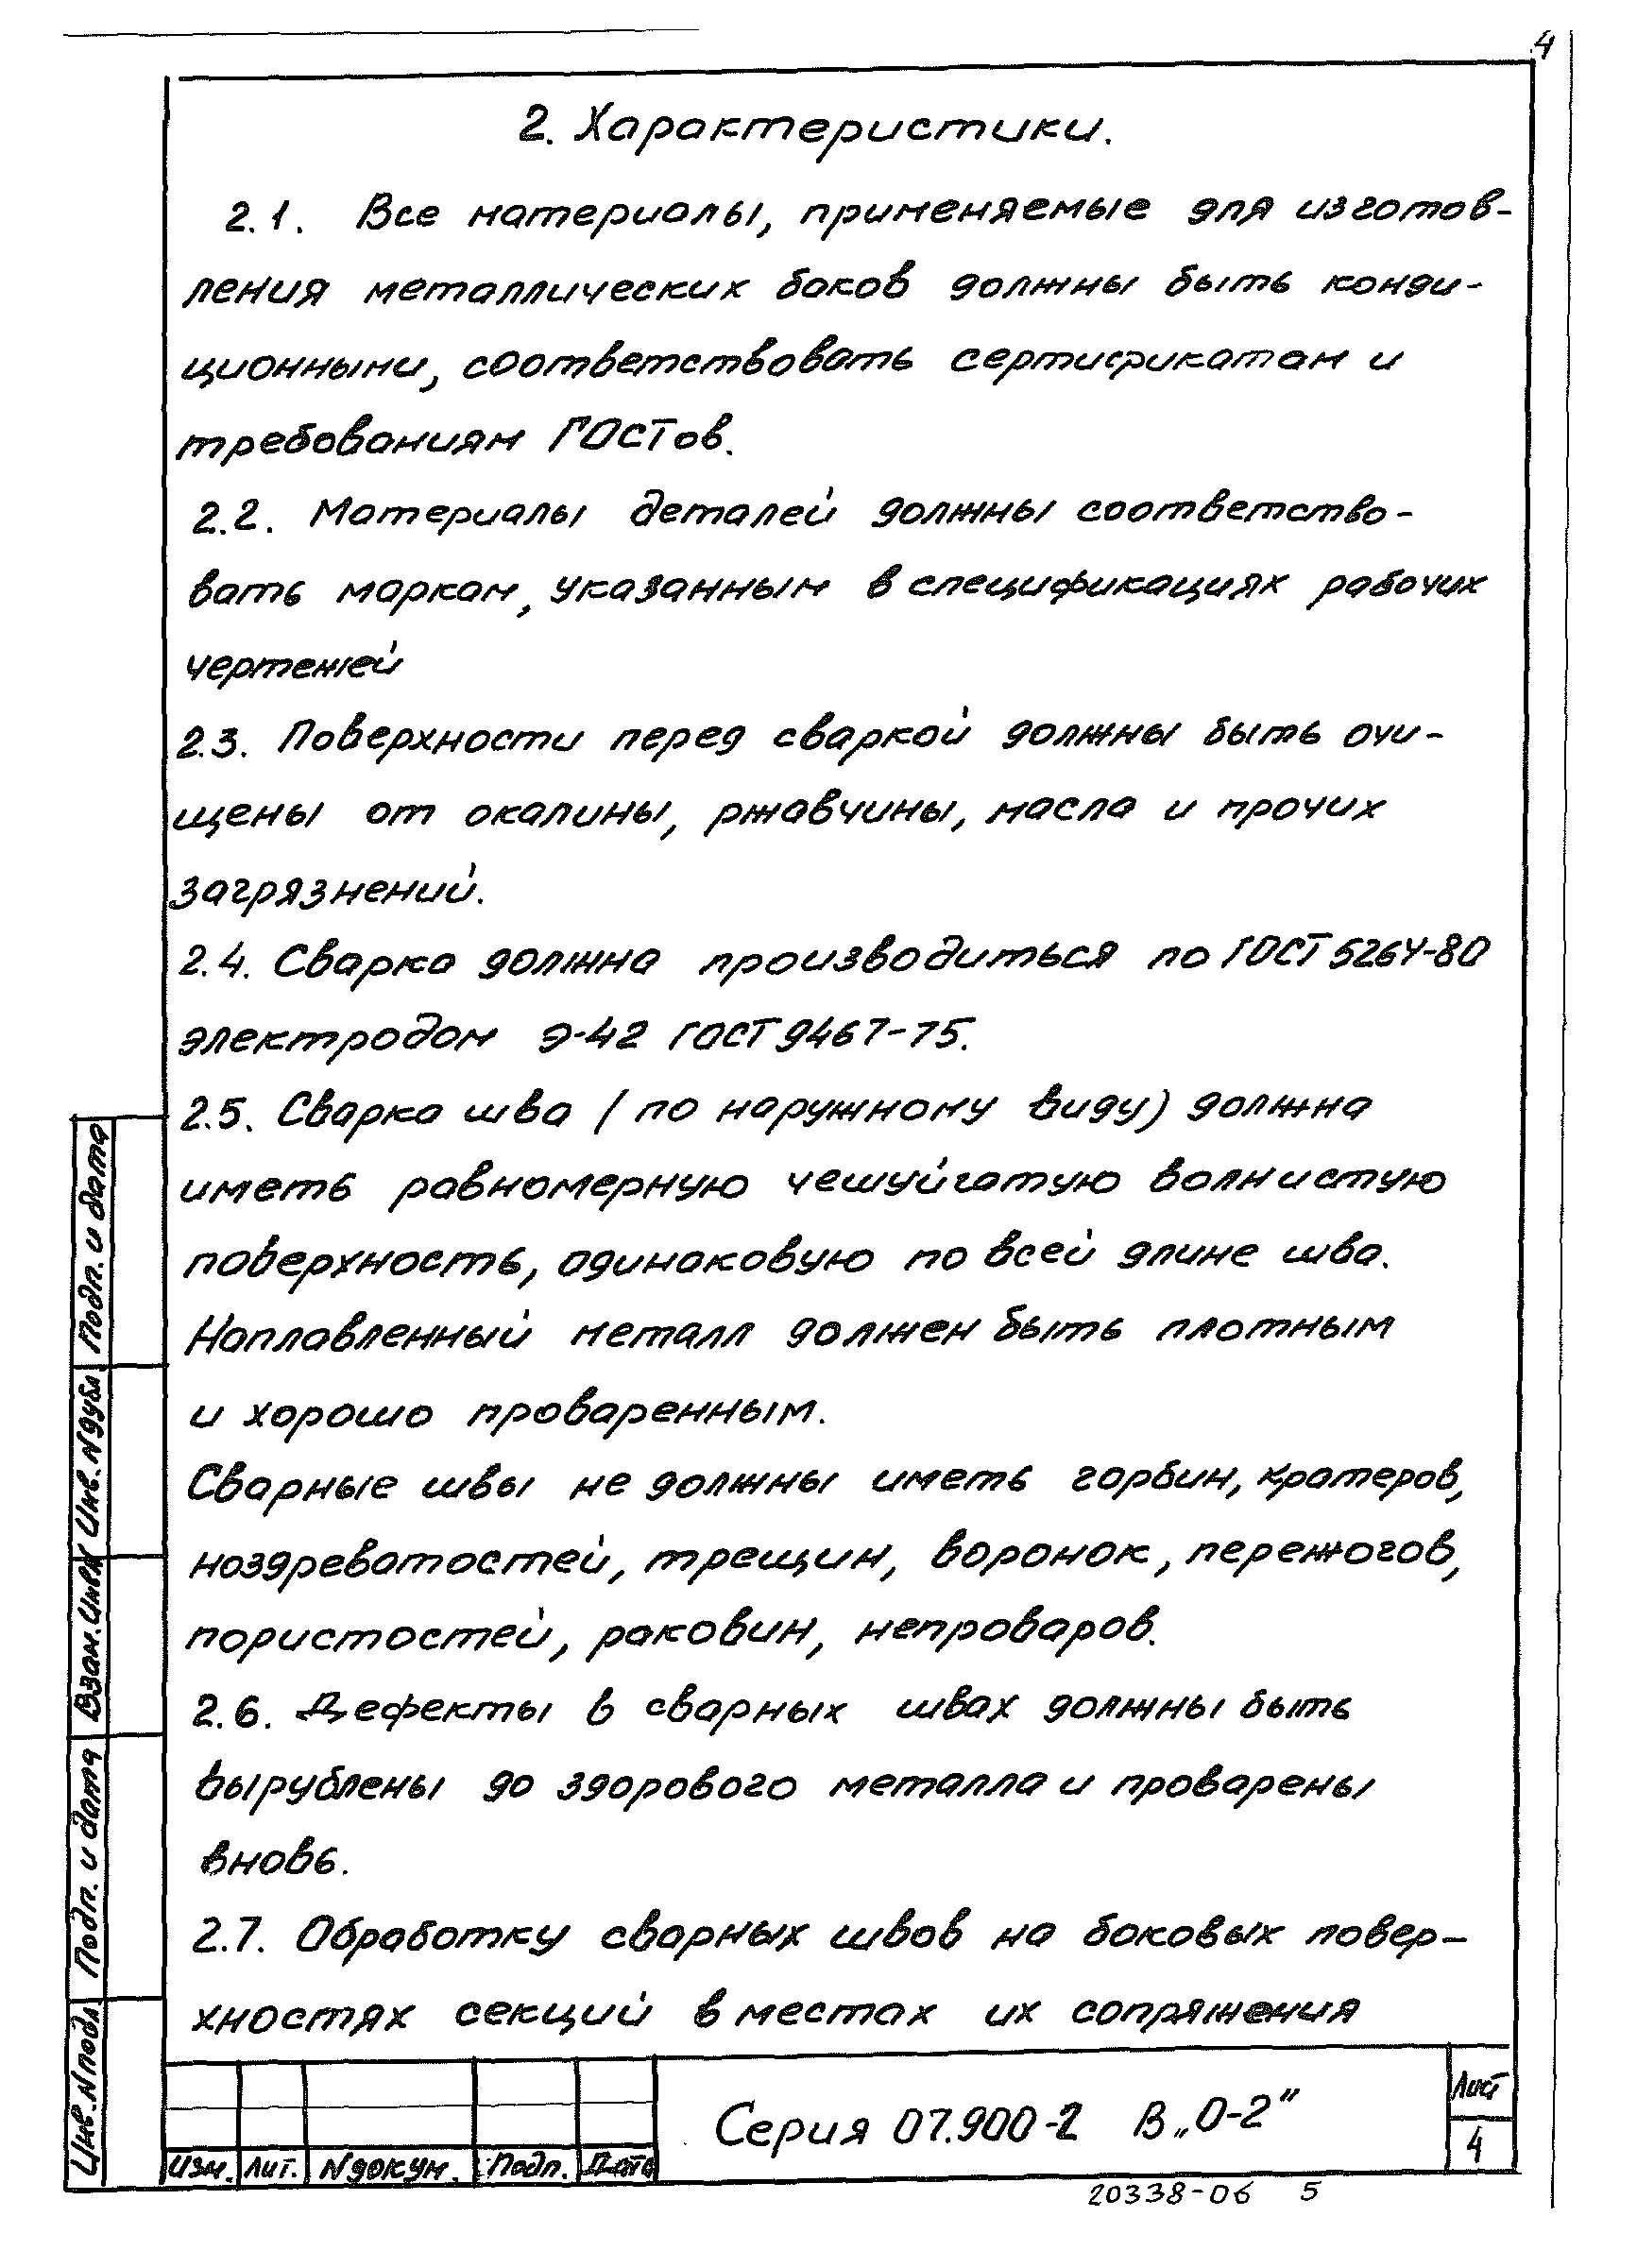 4
2. Характеристики.
2.1. Все материалы, применяемые для изготов-
ления металлических баков должны быть конди-
ционными, соответствовать сертификатам и
требованиям ГОСТов.
2.2. Материалы деталей должны соответство-
вать маркам, указанным в спецификациях рабочих
чертежей
2.3. Поверхности перед сваркой должны быть очи-
щены от окалины, ржавчины, масла и прочих
загрязнений.
2.4. Сварка должна производиться по ГОСТ 5264-80
электродом Э-42 ГОСТ 9467-75.
2.5. Сварка шва (по наружному виду) должна
иметь равномерную чешуйчатую волнистую
поверхность, одинаковую по всей длине шва.
Наплавленный металл должен быть плотным
и хорошо проваренным.
Сварные швы не должны иметь горбин, кратеров,
ноздреватостей, трещин, воронок, пережогов,
пористостей, раковин, непроваров.
2.6. Дефекты в сварных швах должны быть
вырублены до здорового металла и проварены
вновь.
2.7. Обработку сварных швов на боковых повер-
хностях секций в местах их сопряжения
Подп. и дата
Инв. N дубл.
Взам. Инв. N
Подп. и дата
Инв. N подл.
Изм. Лит. N докум. Подп. Дата
Серия 07.900-2 В „0-2"
Лист
4
20338-06 5